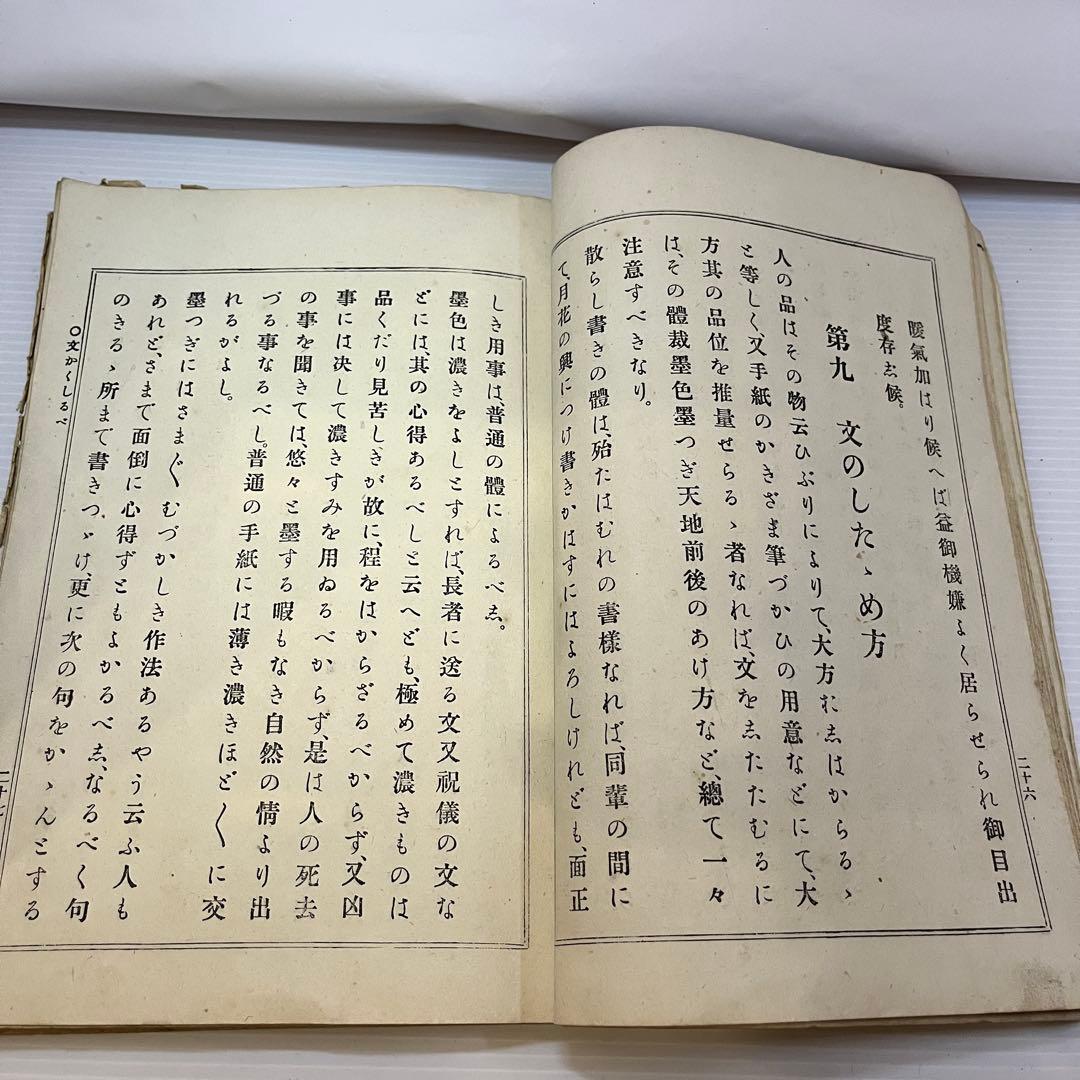 暖氣加はり候へば益御機嫌よく居らせられ御目出
度存志候。
第九 文のしたゝめ方
人の品はその物云ひぶりによりて、大方お志はからるゝ
と等しく、又手紙のかきざま筆づかひの用意などにて、大
方其の品位を推量せらるゝ者なれば、文を志たたむるに
は、その體裁墨色墨つぎ天地前後のあけ方など、總て一々
注意すべきなり。
散らし書きの體は、殆たはむれの書樣なれば、同輩の間に
て、月花の興につけ書きかはすにはよろしけれども、面正
二十六
しき用事は、普通の體によるべ志。
墨色は濃きをよしとすれば、長者に送る文又祝儀の文な
どには、其の心得あるべしと云へども、極めて濃きものは
品くだり見苦しきが故に、程をはからざるべからず、又凶
事には決して濃きすみを用ゐるべからず、是は人の死去
の事を聞きては、悠々と墨する暇もなき自然の情より出
づる事なるべし。普通の手紙には薄き濃きほど〱に交
れるがよし。
墨つぎにはさま〲むづかしき作法あるやう云ふ人も
あれど、さまで面倒に心得ずともよかるべ志、なるべく句
のきるゝ所まで書きつゞけ、更に次の句をかゝんとする
〇文かくしるべ